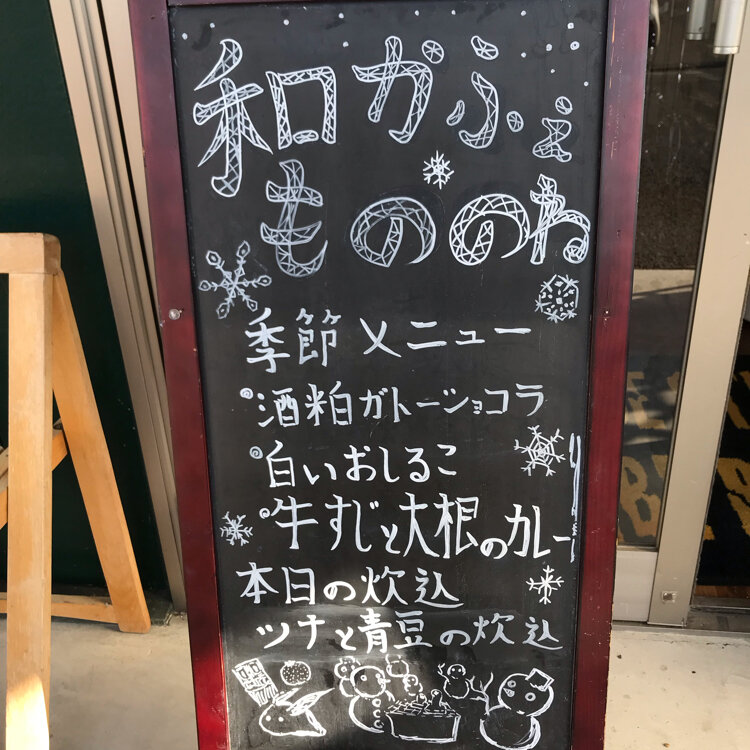 和かふぇ
もののわ
季節メニュー
酒粕ガトーショコラ
白いおしるこ
牛すじと大根のカレー
本日の炊込
ツナと青豆の炊込